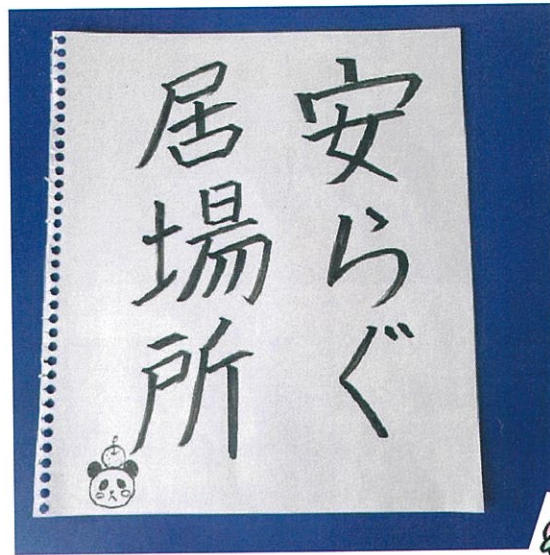 安らぐ
居場所